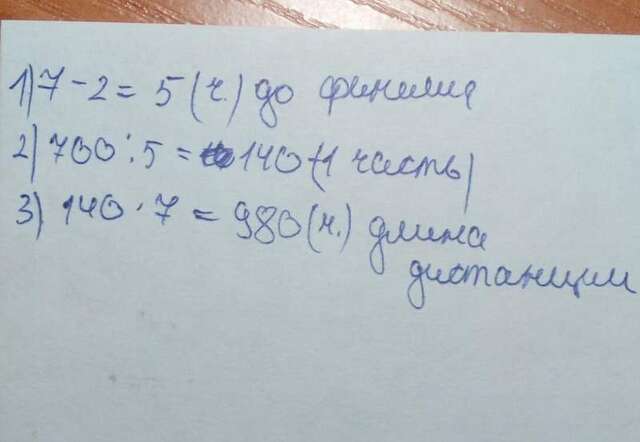 1) 7 - 2 = 5 (ч.) до финиша
2) 700 : 5 = 140 (1 часть)
3) 140 · 7 = 980 (ч.) длина
дистанции